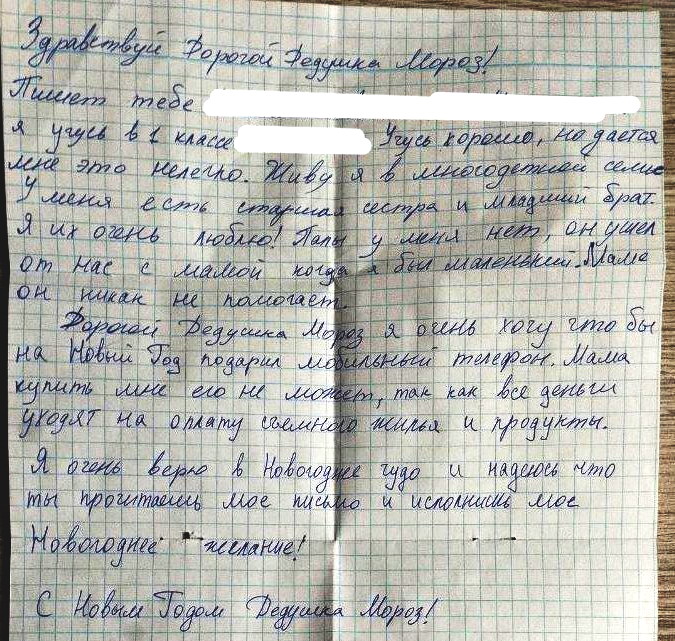 Здравствуй Дорогой Дедушка Мороз!
Пишет тебе
я учусь в 1 классе Учусь хорошо, но дается
мне это нелегко. Живу я в многодетной семье
У меня есть старшая сестра и младший брат.
Я их очень люблю! Папы у меня нет, он ушел
от нас с мамой когда я был маленький. Маме
он никак не помогает.
Дорогой Дедушка Мороз я очень хочу что бы
на Новый Год подарил мобильный телефон. Мама
купить мне его не может, так как все деньги
уходят на оплату съемного жилья и продукты.
Я очень верю в Новогоднее чудо и надеюсь что
ты прочитаешь мое письмо и исполнишь мое
Новогоднее желание!
С Новым Годом Дедушка Мороз!